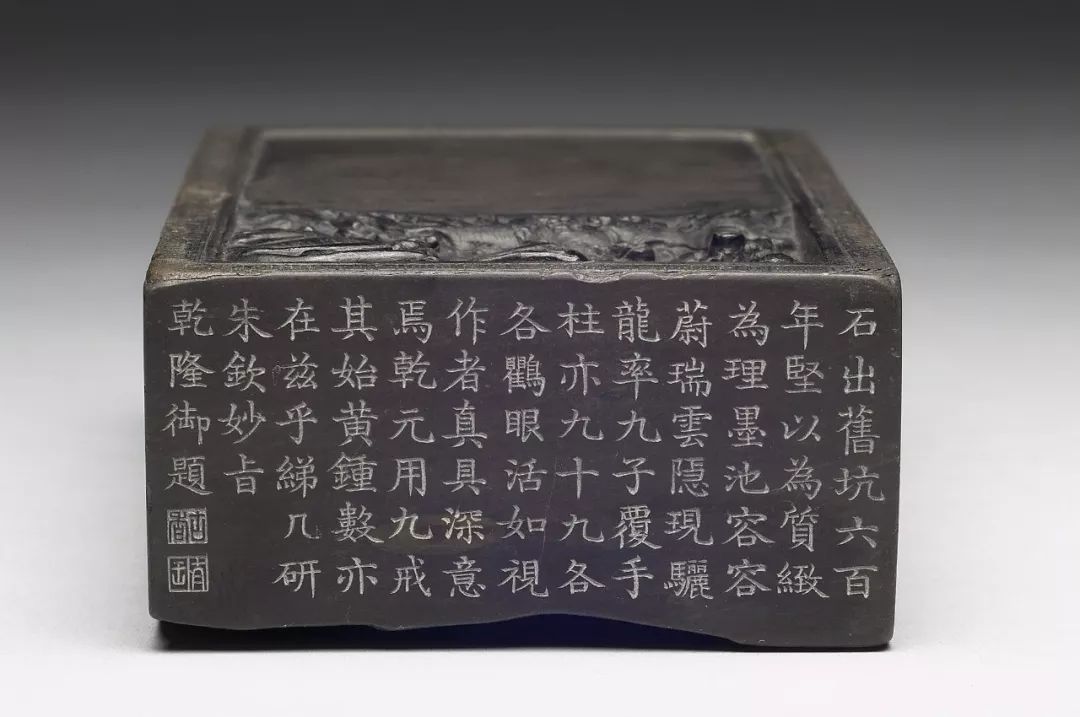 石出舊坑六百
年堅以為質緻
為理墨池容容
蔚瑞雲隱現驪
龍率九子覆手
柱亦九十九各
各鸜眼活如視
作者真具深意
焉乾元用九戒
其始黄鍾數亦
在兹乎綈几研
朱欽妙㫖
乾隆御題